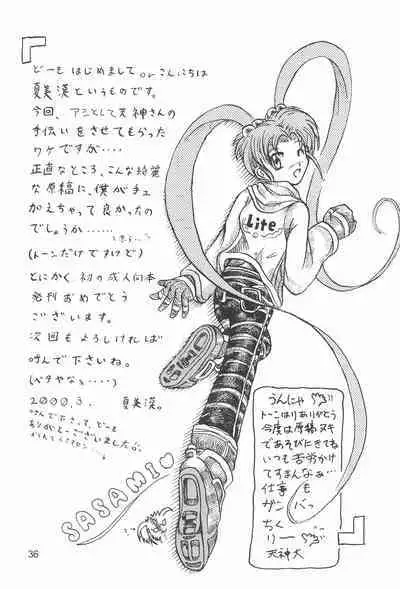 どーも はじめまして orこんにちは
夏美漠というものです。
今回、アシとして天神さんの
手伝いをさせてもらった
ワケですが‥‥
正直なところ、こんな綺麗
な原稿に、僕がチェ
かえちゃって良かったの
でしょうか‥‥‥
(トーンだけですけど)
とにかく 初の成人向本
発刊おめでとう
ございます。
次回もよろしければ
呼んで下さいね。
(ベタやなぁ‥‥)
2000.3. 夏美漠。
Lite
SASAMI♡
うんにゃ
トーンはりありがとう
今度は原稿ヌキ
であそびにきてね
いつも苦労かけ
てすまんなぁ…
仕事 も
ガンバっ
ちく
リー
天神大
36